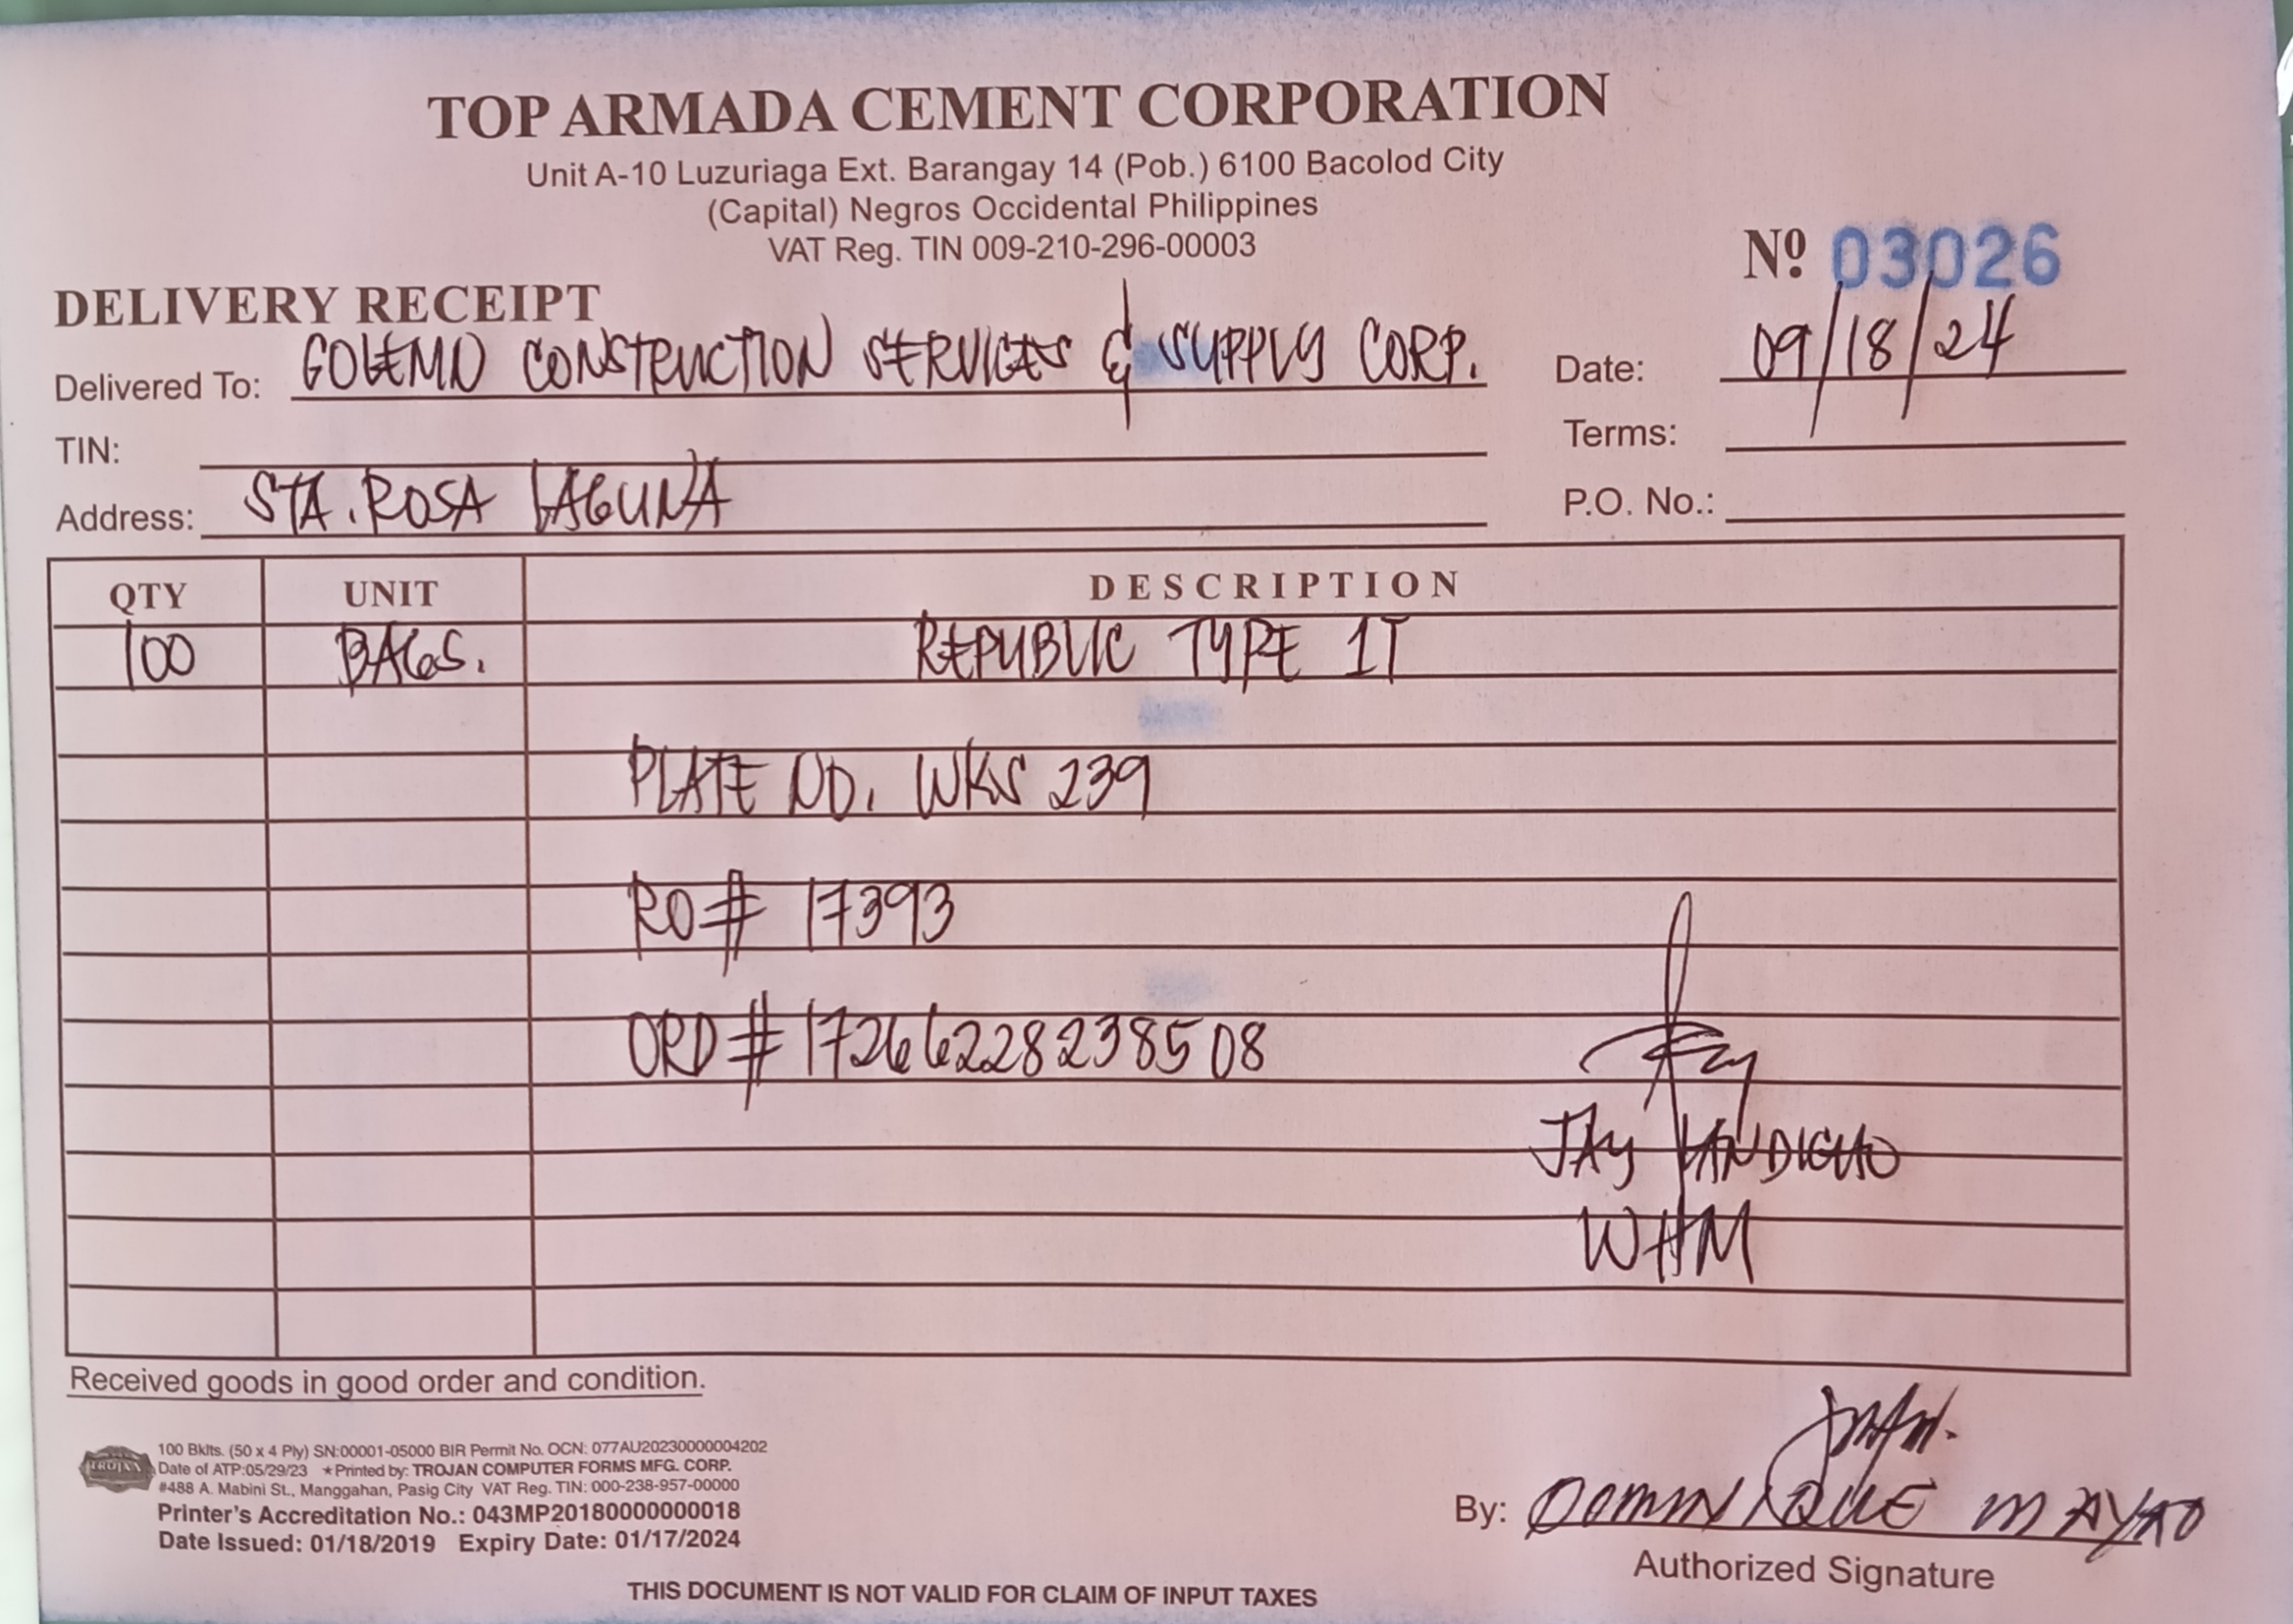 TOP ARMADA CEMENT CORPORATION
Unit A-10 Luzuriaga Ext. Barangay 14 (Pob.) 6100 Bacolod City
(Capital) Negros Occidental Philippines
VAT Reg. TIN 009-210-296-00003
Nº 03026
DELIVERY RECEIPT
Delivered To: GOLEMO CONSTRUCTION SERVICES & SUPPLY CORP.
Date: 09/18/24
TIN:
Terms:
Address: STA. ROSA LAGUNA
P.O. No.:
QTY UNIT DESCRIPTION
100 BAGS. REPUBLIC TYPE 1T
PLATE NO. WKS 239
RO# 17393
ORD# 17266228238508
JAY
WHM
Received goods in good order and condition.
TROJAN
100 Bklts. (50 x 4 Ply) SN:00001-05000 BIR Permit No. OCN: 077AU20230000004202
Date of ATP:05/29/23 ★Printed by: TROJAN COMPUTER FORMS MFG. CORP.
#488 A. Mabini St., Manggahan, Pasig City VAT Reg. TIN: 000-238-957-00000
Printer's Accreditation No.: 043MP20180000000018
Date Issued: 01/18/2019 Expiry Date: 01/17/2024
By: DOMINIQUE
Authorized Signature
THIS DOCUMENT IS NOT VALID FOR CLAIM OF INPUT TAXES